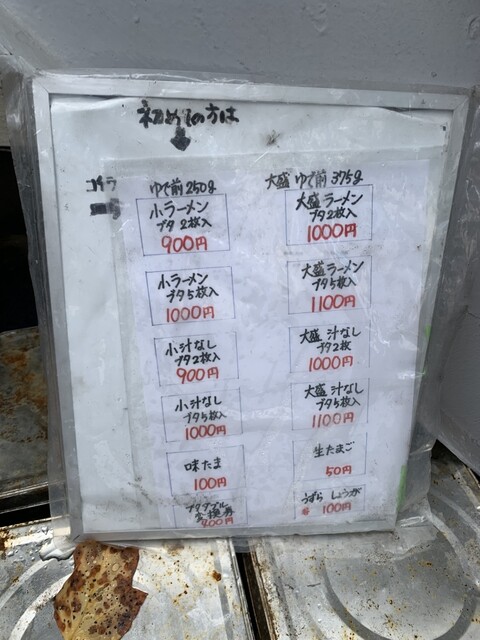 初めての方は
↓
コチラ
ゆで前 250g
小ラーメン
ブタ 2枚入
900円
小ラーメン
ブタ5枚入
1000円
小 汁なし
ブタ2枚入
900円
小 汁なし
ブタ5枚入
1000円
味たま
100円
ブタダブル
900円
大盛 ゆで前 375g
大盛 ラーメン
ブタ2枚入
1000円
大盛 ラーメン
ブタ5枚入
1100円
大盛 汁なし
ブタ2枚
1000円
大盛 汁なし
ブタ5枚入
1100円
生たまご
50円
うずら しょうが
100円